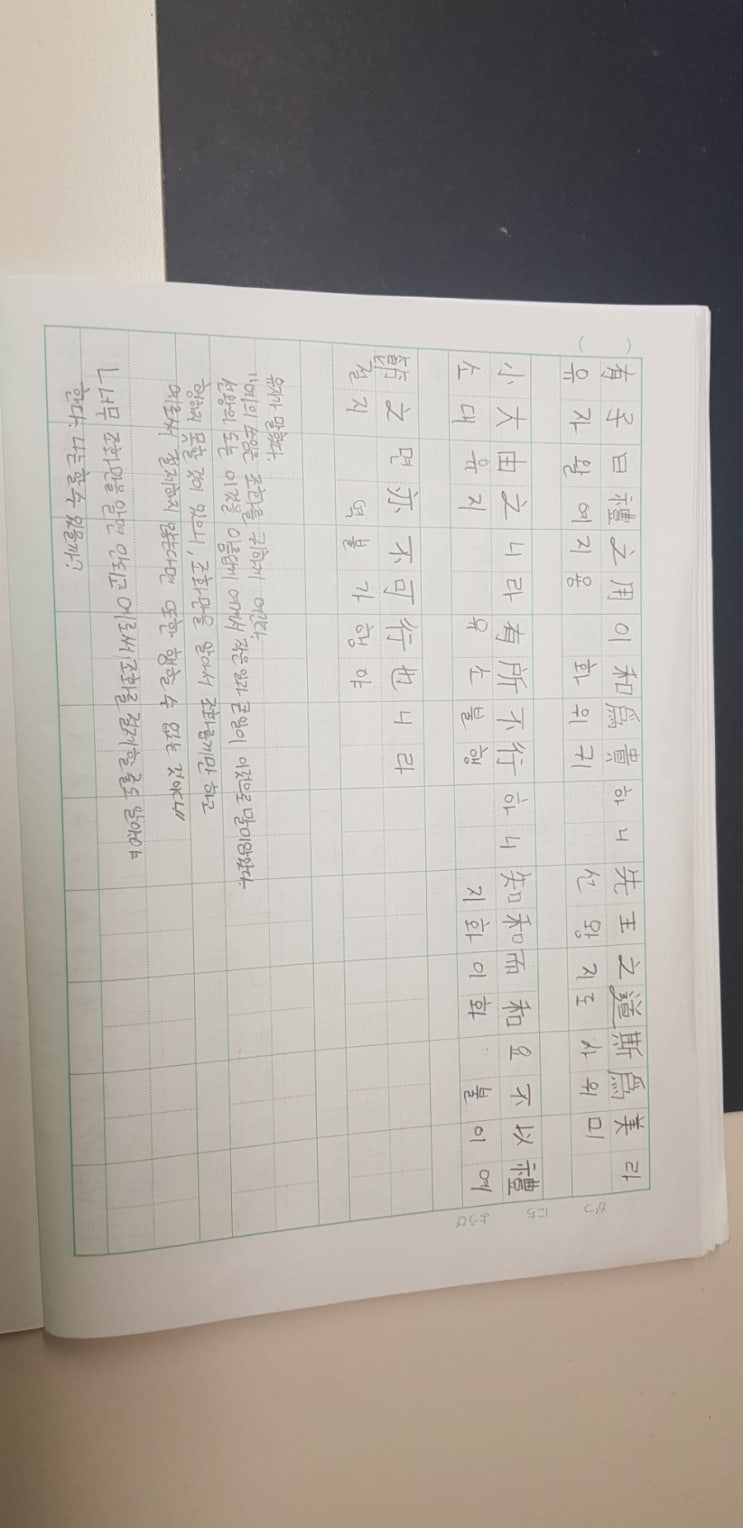 有子曰禮之用이和爲貴하니先王之道斯爲美라
유자왈예지용 화위귀 선왕지도사위미
小大由之니라有所不行하니知和而和요不以禮
소대유지 유소불행 지화이화 불이예
節之면亦不可行也니라
절지 역불가행야
유자가 말했다.
"예의 쓰임은 조화를 귀하게 여긴다.
선왕의 도는 이것을 아름답게 여겨서 작은 일과 큰일이 이것으로 말미암았다.
행하지 못할 것이 있으니, 조화만을 알아서 조화롭게만 하고
예로써 절제하지 않는다면 또한 행할 수 없는 것이다."
나는 할 수 있을까?